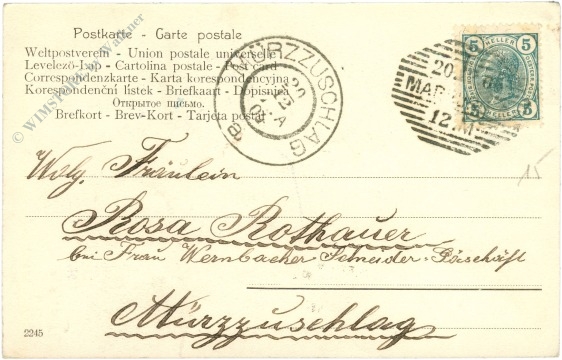 Postkarte - Carte postale
Weltpostverein - Union postale universelle
Levelező-Lap - Cartolina postale - Post card
Correspondenzkarte - Karta korespondencyjna
Korespondenční lístek - Briefkaart - Dopisnica
Открытое письмо.
Brefkort - Brev-Kort - Tarjeta postal
© WIMSTORE Wallner
MÜRZZUSCHLAG
20
12
A
5 HELLER 5
5 HELLER 5
20
12.M
15
Wolg. Fräulein
Rosa Rothauer
bei Frau Wernbacher Schneider-Gäschäft
Mürzzuschlag
2245